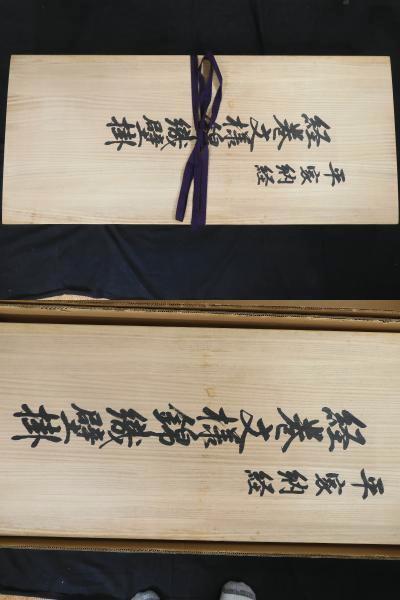 平家納経
経巻文様錦織壁掛
平家納経
経巻文様錦織壁掛